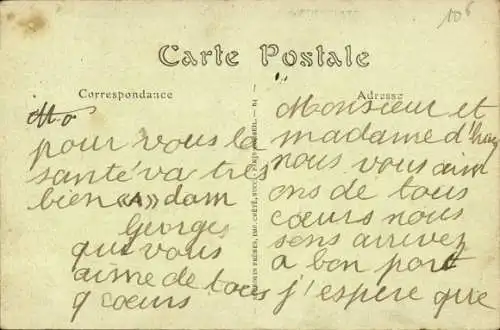 106
Carte Postale
Correspondance
Adresse
Monsieur et
madame d'hay
nous vous aim
ons de tous
cœurs nous
sens arrivez
a bon port
j'espère que
pour vous la
santé va très
bien «A» dam
Georges
qui vous
aime de tous
q cœurs